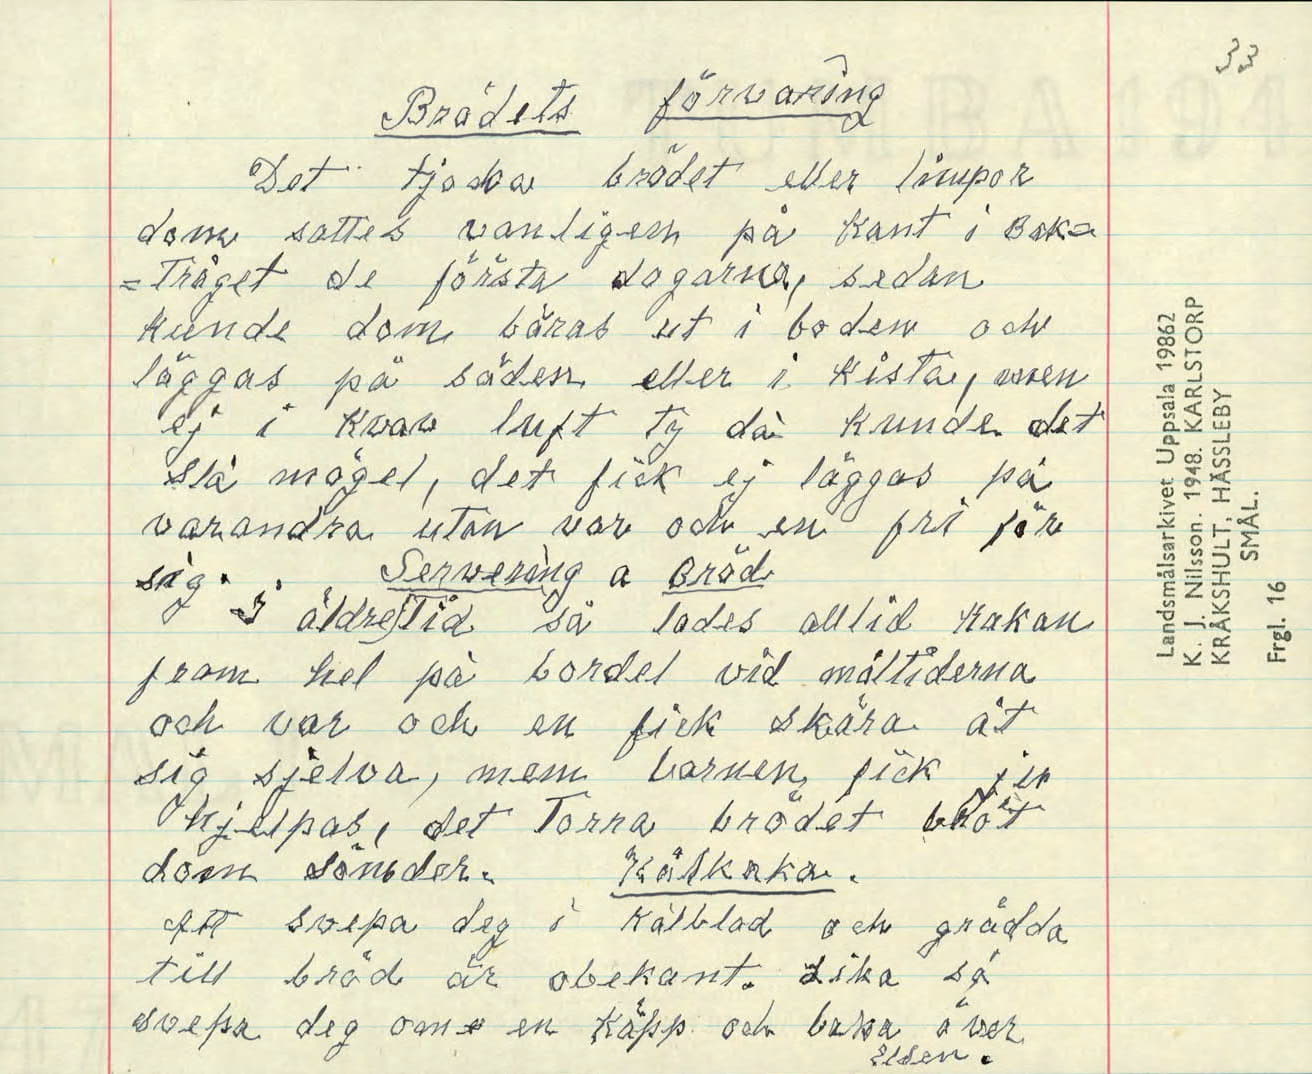 33
Brödets förvaring
Det tjocka brödet eller limpor
dom sattes vanligen på kant i Bak=
=Tråget de första dagarna, sedan
kunde dom bäras ut i boden och
läggas på säden eller i kista, men
ej i kvav luft ty då kunde det
slå mögel, det fick ej läggas på
varandra utan var och en fri för
sig. Servering a Bröd
I äldre Tid så lades alltid kakan
fram hel på bordet vid måltiderna
och var och en fick skära åt
sig sjelva, mem barnen fick ju
hjelpas, det Torra brödet bröt
dom sönder. Kålkaka.
Att svepa deg i kålblad och grädda
till bröd är obekant. Lika så
svepa deg om en käpp och baka över
Elden.
Landsmålsarkivet Uppsala 19862
K. J. Nilsson. 1948. KARLSTORP
KRÅKSHULT, HÄSSLEBY
SMÅL.
Frgl. 16